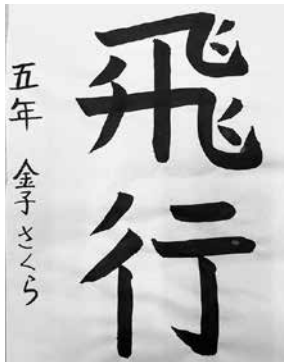 飛行
五年 金子さくら